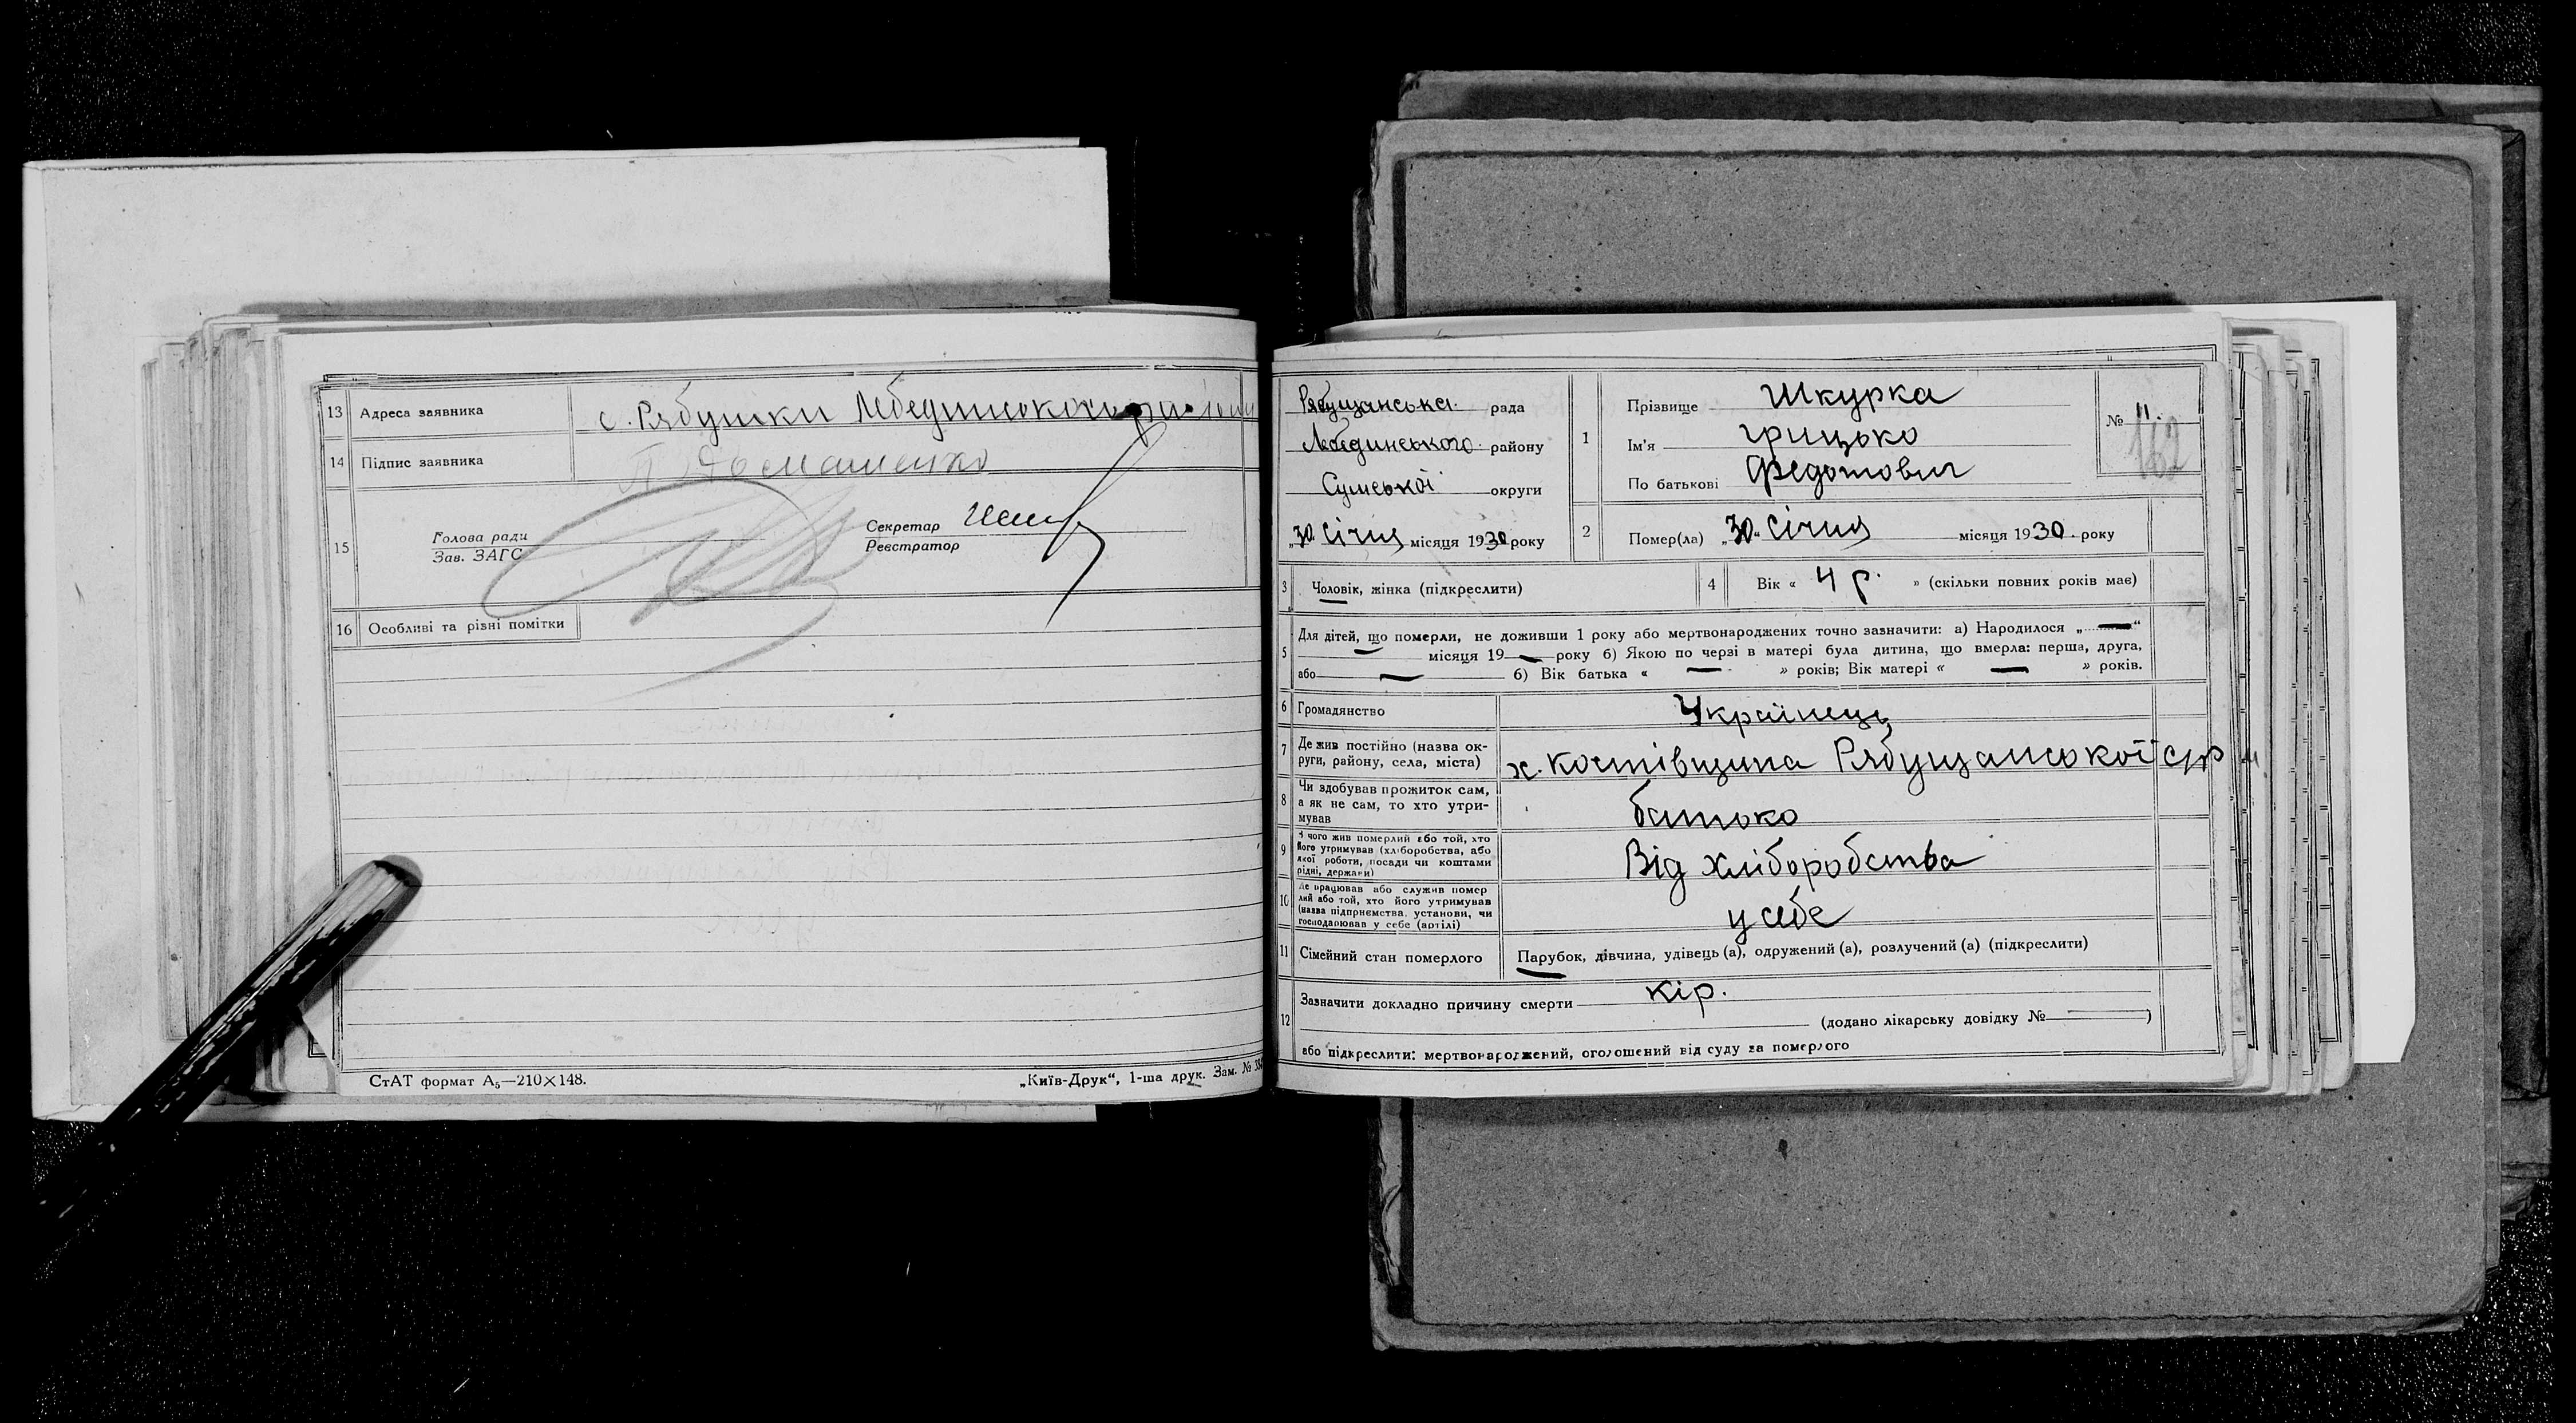 13 Адреса заявника с. Рябушки Лебединського району
14 Підпис заявника П. Домашенко
15 Голова ради
Зав. ЗАГС
Секретар
Реєстратор
16 Особливі та різні помітки
СтАТ формат А5—210×148.
„Київ-Друк“, 1-ша друк. Зам. №
Рябущанська рада
Лебединського району
Сумської округи
„30“ Січня місяця 1930 року
1 Прізвище Шкурка
Ім'я Грицько
По батькові Федотович
№ 11.
162
2 Помер(ла) „30“ Січня місяця 1930 року
3 Чоловік, жінка (підкреслити)
4 Вік « 4 р. » (скільки повних років має)
5 Для дітей, що померли, не доживши 1 року або мертвонароджених точно зазначити: а) Народилося „—“
— місяця 19— року б) Якою по черзі в матері була дитина, що вмерла: перша, друга,
або — б) Вік батька « — » років; Вік матері « — » років.
6 Громадянство Українець
7 Де жив постійно (назва ок-
руги, району, села, міста) х. Костівщина Рябущанської с/р
8 Чи здобував прожиток сам,
а як не сам, то хто утри-
мував батько
9 З чого жив померлий або той, хто
його утримував (хліборобства, або
якої роботи, посади чи коштами
рідні, держави) Від хліборобства
10 Де працював або служив помер
лий або той, хто його утримував
(назва підприємства, установи, чи
господарював у себе (артілі) у себе
11 Сімейний стан померлого Парубок, дівчина, удівець (а), одружений (а), розлучений (а) (підкреслити)
12 Зазначити докладно причину смерти кір.
(додано лікарську довідку № — )
або підкреслити: мертвонароджений, оголошений від суду за померлого